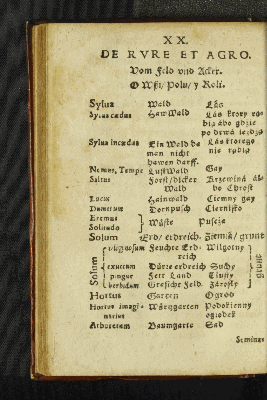 XX.
DE RVRE ET AGRO.
Vom Feld vnd Acker.
O Wsi/ Polu/ y Roli.
Sylua Wald Lás
Sylua cædua Haw Wald Lás ktory rą-
bią ábo gdzie
po drwá ieżdżą
Sylua incædua Ein Wald da Lás ktorego
man nicht nie rąbią
hawen darff.
Nemus, Tempe Lustwald Gay
Saltus Forst/dicker Krzewiná ál-
Wald bo Chrost
Lucus Hainwald Ciemny gay
Dumetum Dornpusch Ciernisko
Eremus
Solitudo Wüste Puszcza
Solum Erd/ erdreich. Ziemiá/ grunt
Solum uliginosum Feuchte Erd- Wilgotny grunt
reich
exuctum Dürre erdreich Suchy
pingue Fett Land Tłusty
herbidum Grasicht Feld. Zárosły
Hortus Garten Ogrod
Hortus imagi- Würtzgarten Podokienny
narius ogrodek
Arboretum Baumgarte Sad
Seminari-